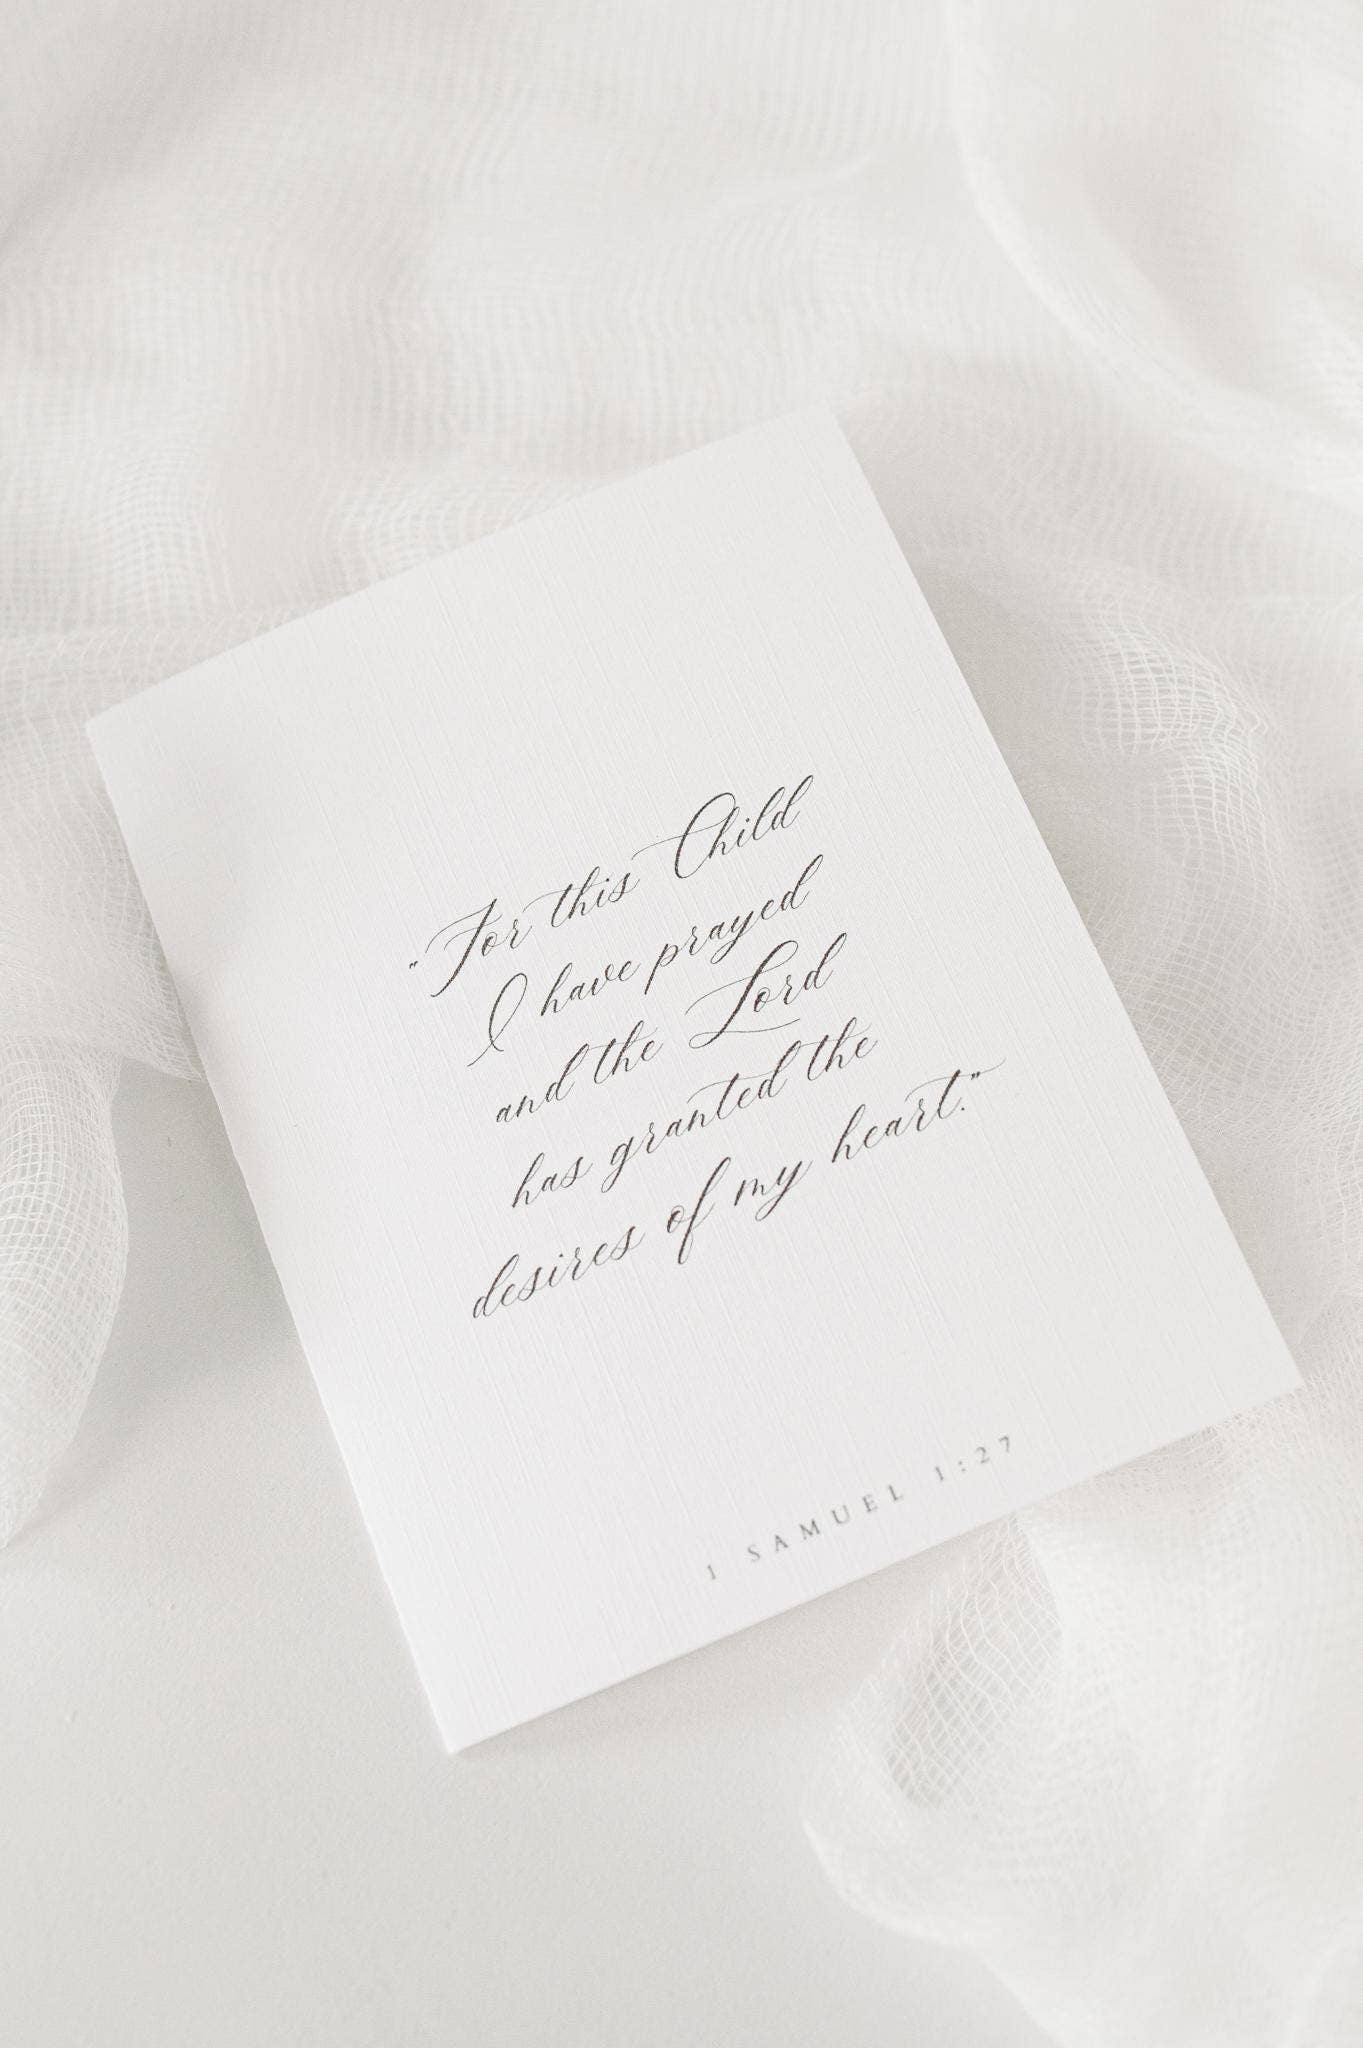 "For this Child
I have prayed
and the Lord
has granted the
desires of my heart."
1 SAMUEL 1:27